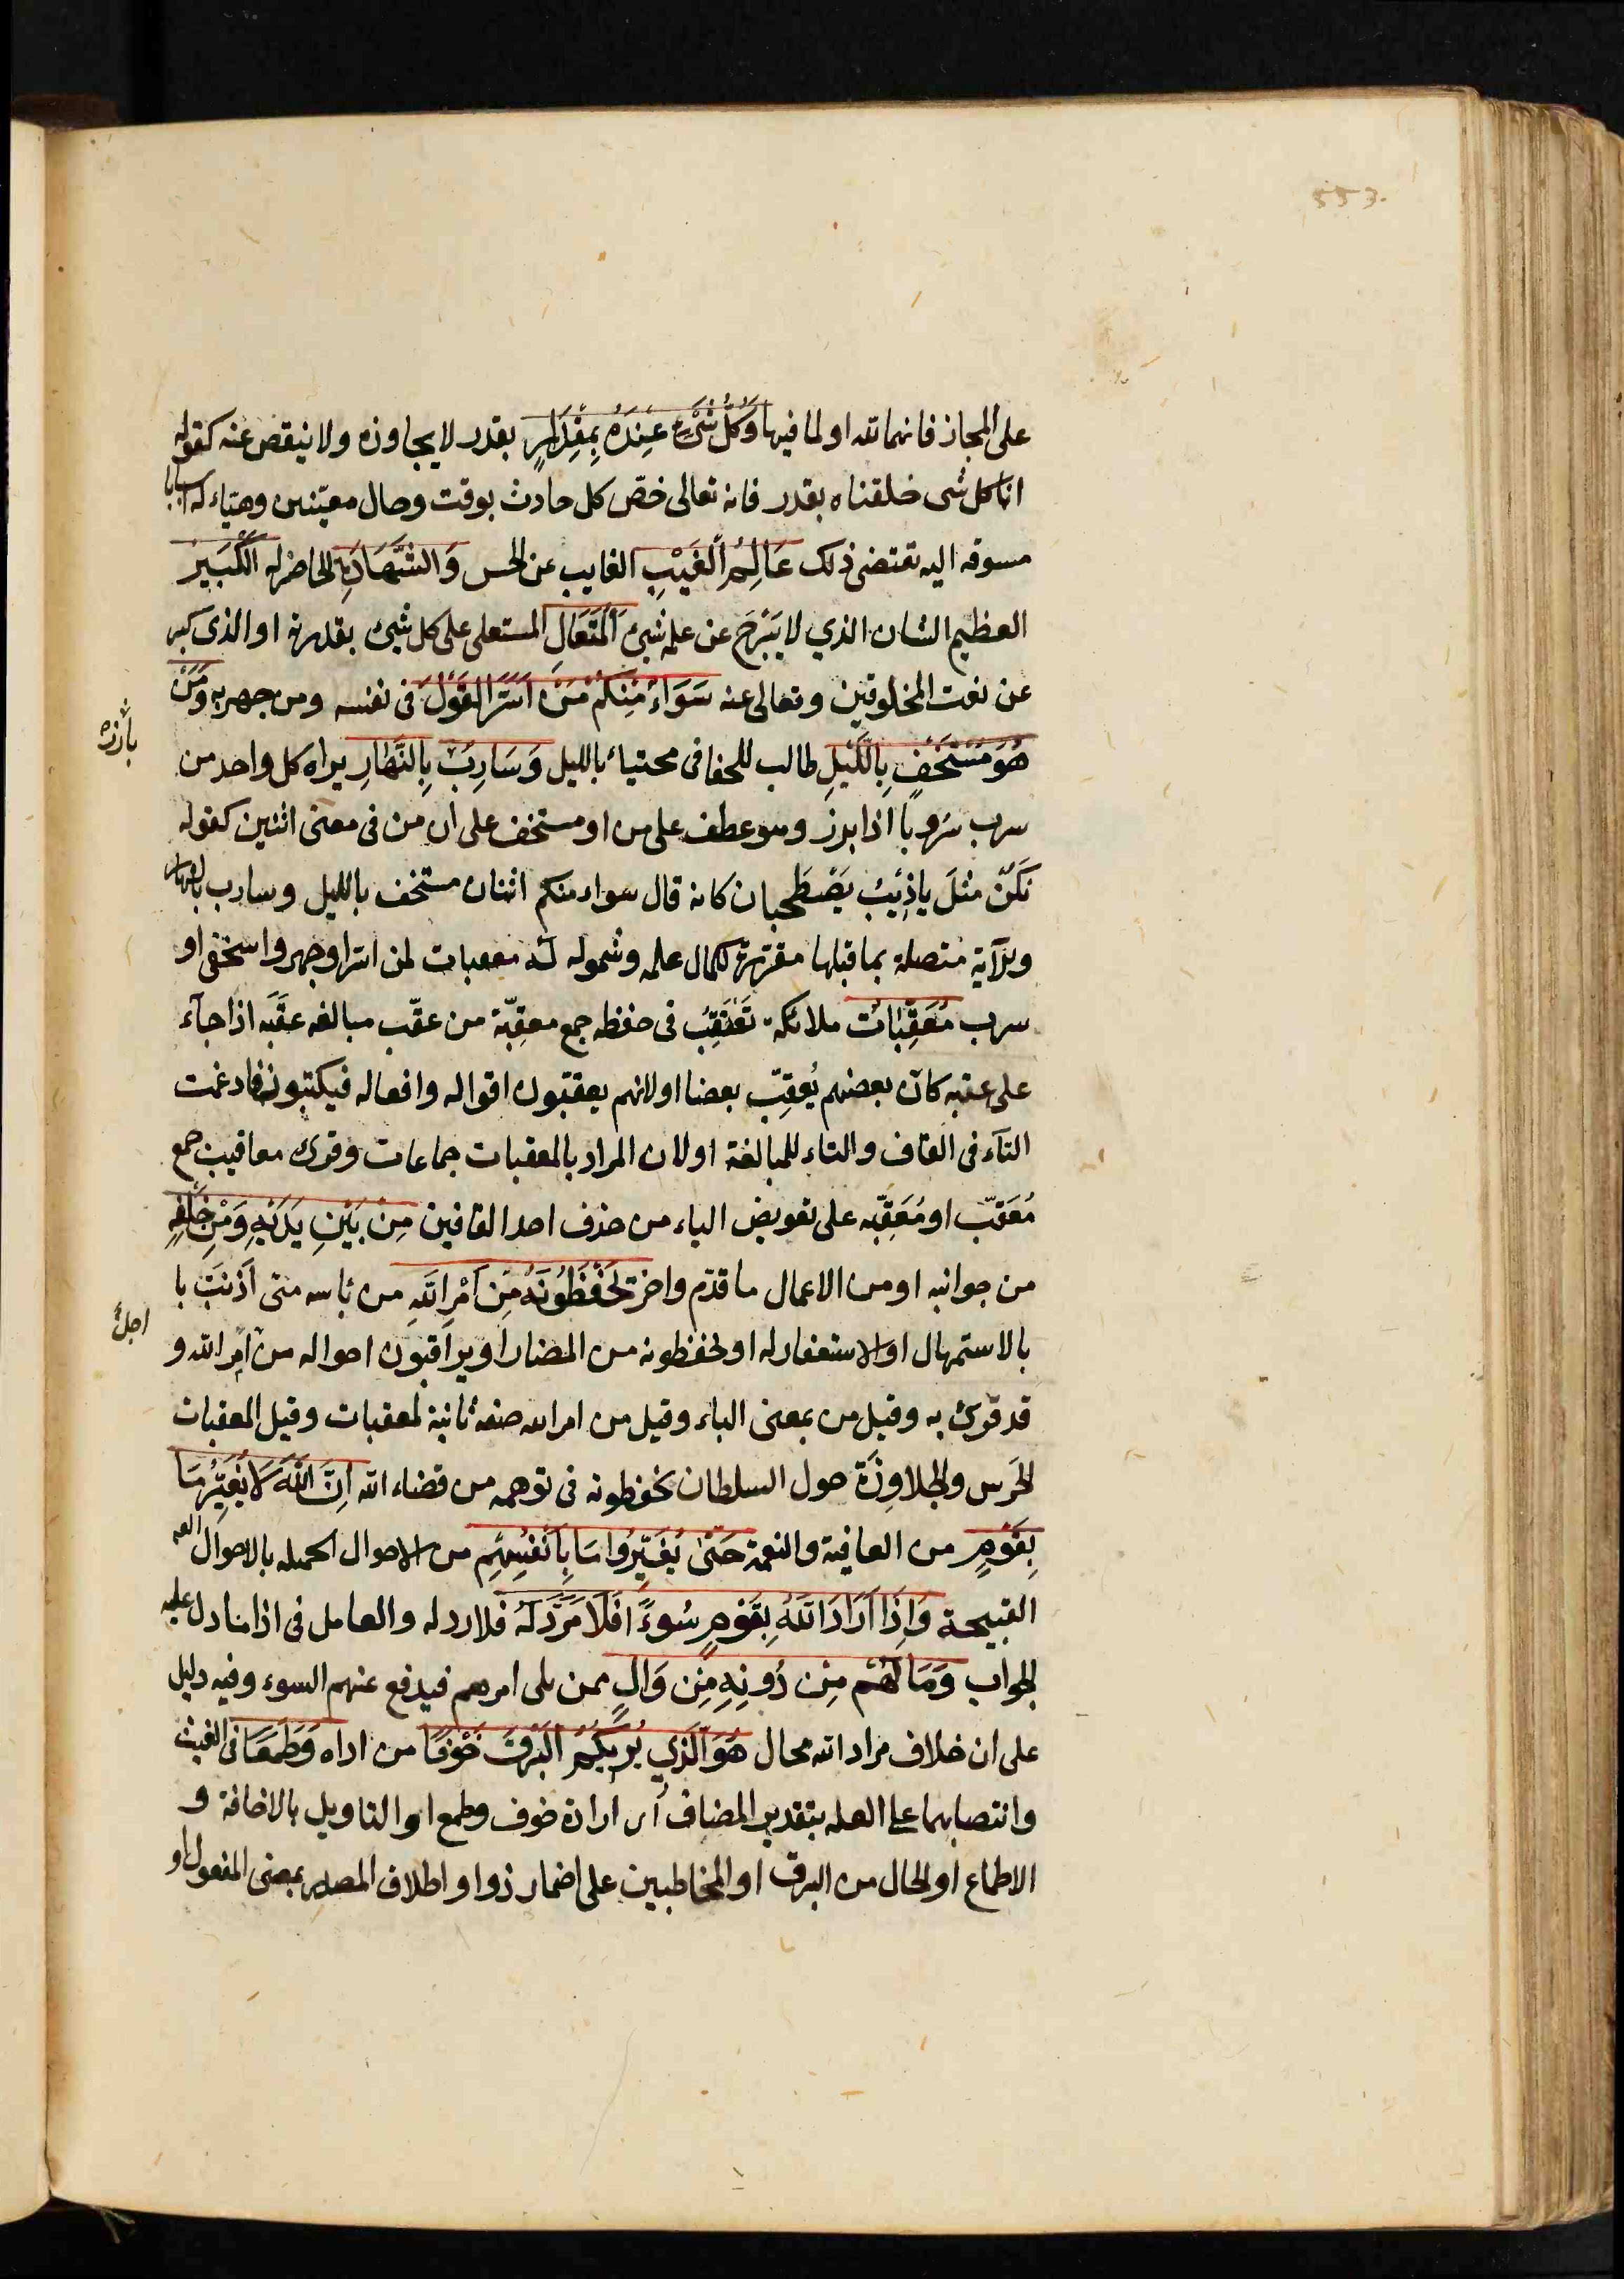 553.
على المجاز فانهما لله او لما فيها وَكُلُّ شَیْءٍ عِنْدَهُ بِمِقْدَارٍ بقدر لا يجاوزه ولا ينقص عنه كقوله
انا كل شی خلقناه بقدر فانه تعالى خصّ كل حادث بوقت وحال معيّنين وهيّاء له اسبابا
مسوقه اليه تقتضی ذلك عَالِمُ الْغَيْبِ الغايب عن الحس وَالشَّهَادَةِ الحاضر له الْكَبِيرُ
العظيم الشان الذي لا يَبْرَحُ عن علمه شیء الْمُتَعَالِ المستعلی على كل شیء بقدرته او الذی كبر
عن نعت المخلوقين وتعالى عنه سَوَاءٌ مِنْكُمْ مَنْ اَسَرَّ الْقَوْلَ فی نفسه ومن جهر به وَمَنْ
هُوَ مُسْتَخْفٍ بِاللَّيْلِ طالب للخفا فی مختباء بالليل وَسَارِبٌ بِالنَّهَارِ يراه كل واحد من
بارزه
سرب سَروبا اذا برز وهو عطف على من او مستخف على ان من فی معنى اثنين كقوله
نَكُنْ مثلَ ياذِئبُ يَصْطَحِبان كانه قال سواء منكم اثنان مستخف بالليل وسارب بالنهار
والآية متصلة بما قبلها مقررة لكمال علمه وشموله له معقبات لمن اسر او جهر واستخفی او
سرب مُعَقِّبَاتٌ ملائكه تَعْتَقِبُ فی حفظه جمع معقِبّة من عقّب مبالغه عقَبَه اذا جآء
على عقبه كان بعضهم يُعقِبّ بعضا او لانهم يعقبون اقواله وافعاله فيكتبونه فادغمت
التآء فی القاف والتاء للمبالغة او لان المراد بالمعقبات جماعات وقرئ معاقيب جمع
مُعَقّب او مُعَقِبّه على تعويض الياء من حذف احد القافين مِنْ بَيْنِ يَدَيْهِ وَمِنْ خَلْفِهِ
من جوانبه او من الاعمال ما قدّم واخر يَحْفَظُونَهُ مِنْ اَمْرِ اللَّهِ من بٔاسه متى اَذنبَ با
بالاستمهال او الاستغفار له او يحفظونه من المضار او يراقبون احواله من امر الله و
اجلٔ
قد قرئ به وقيل من بمعنى الباء وقيل من امر الله صفة ثانية لمعقبات وقيل المعقبات
الحَرس والجلاوِزَة حول السلطان يحفظونه فی توهمه من قضاء الله اِنَّ اللَّهَ لَا يُغَيِّرُ مَا
بِقَوْمٍ من العافية والنعمة حَتّٰى يُغَيِّرُوا مَا بِاَنْفُسِهِمْ من الاحوال الجميله بالاحوال
القبيحة وَاِذَا اَرَادَ اللَّهُ بِقَوْمٍ سُوءًا فَلَا مَرَدَّ لَهُ فلا رد له والعامل فی اذا ما دل عليه
الجواب وَمَا لَهُمْ مِنْ دُونِهِ مِنْ وَالٍ ممن يلی امرهم فيدفع عنهم السوء وفيه دليل
على ان خلاف مراد الله محال هُوَ الَّذِي يُرِيكُمُ الْبَرْقَ خَوْفًا من اذاه وَطَمَعًا فی الغيث
وانتصابهما على العله بتقدير المضاف أی ارادة خوف وطمع او التاويل بالاخافة و
الاطماع او الحال من البرق او المخاطبين على اضمار ذو او اطلاق المصدر بمعنى المفعول او